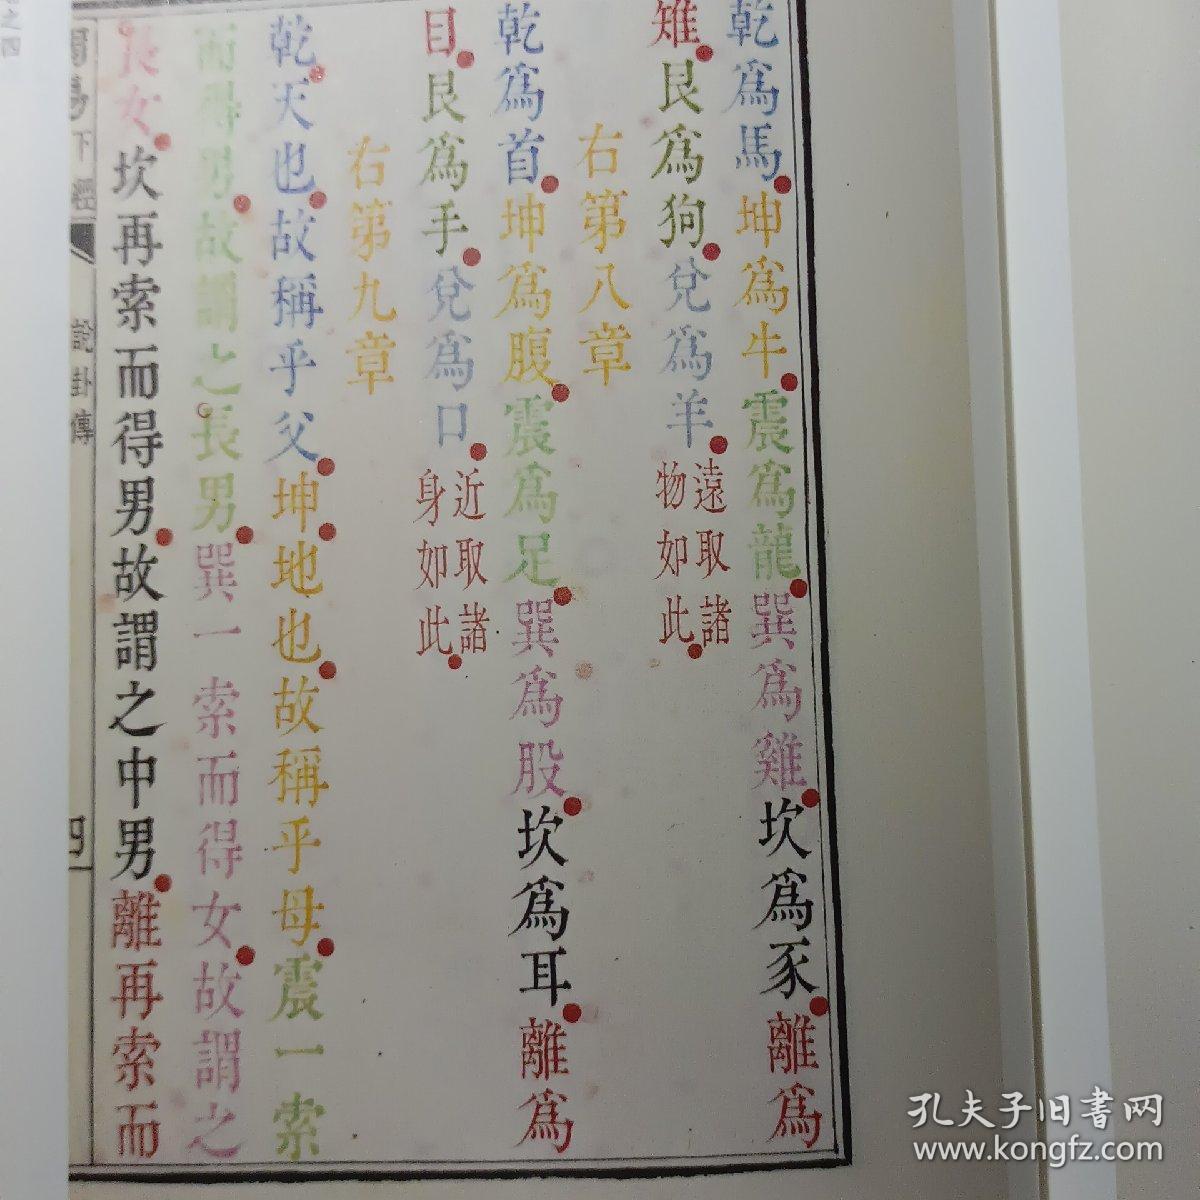 乾爲馬坤爲牛震爲龍巽爲雞坎爲豕離爲
雉艮爲狗兌爲羊遠取諸物如此
右第八章
乾爲首坤爲腹震爲足巽爲股坎爲耳離爲
目艮爲手兌爲口近取諸身如此
右第九章
乾天也故稱乎父坤地也故稱乎母震一索
而得男故謂之長男巽一索而得女故謂之
長女坎再索而得男故謂之中男離再索而
周易下經
說卦傳
四
之四
孔夫子旧書网
www.kongfz.com